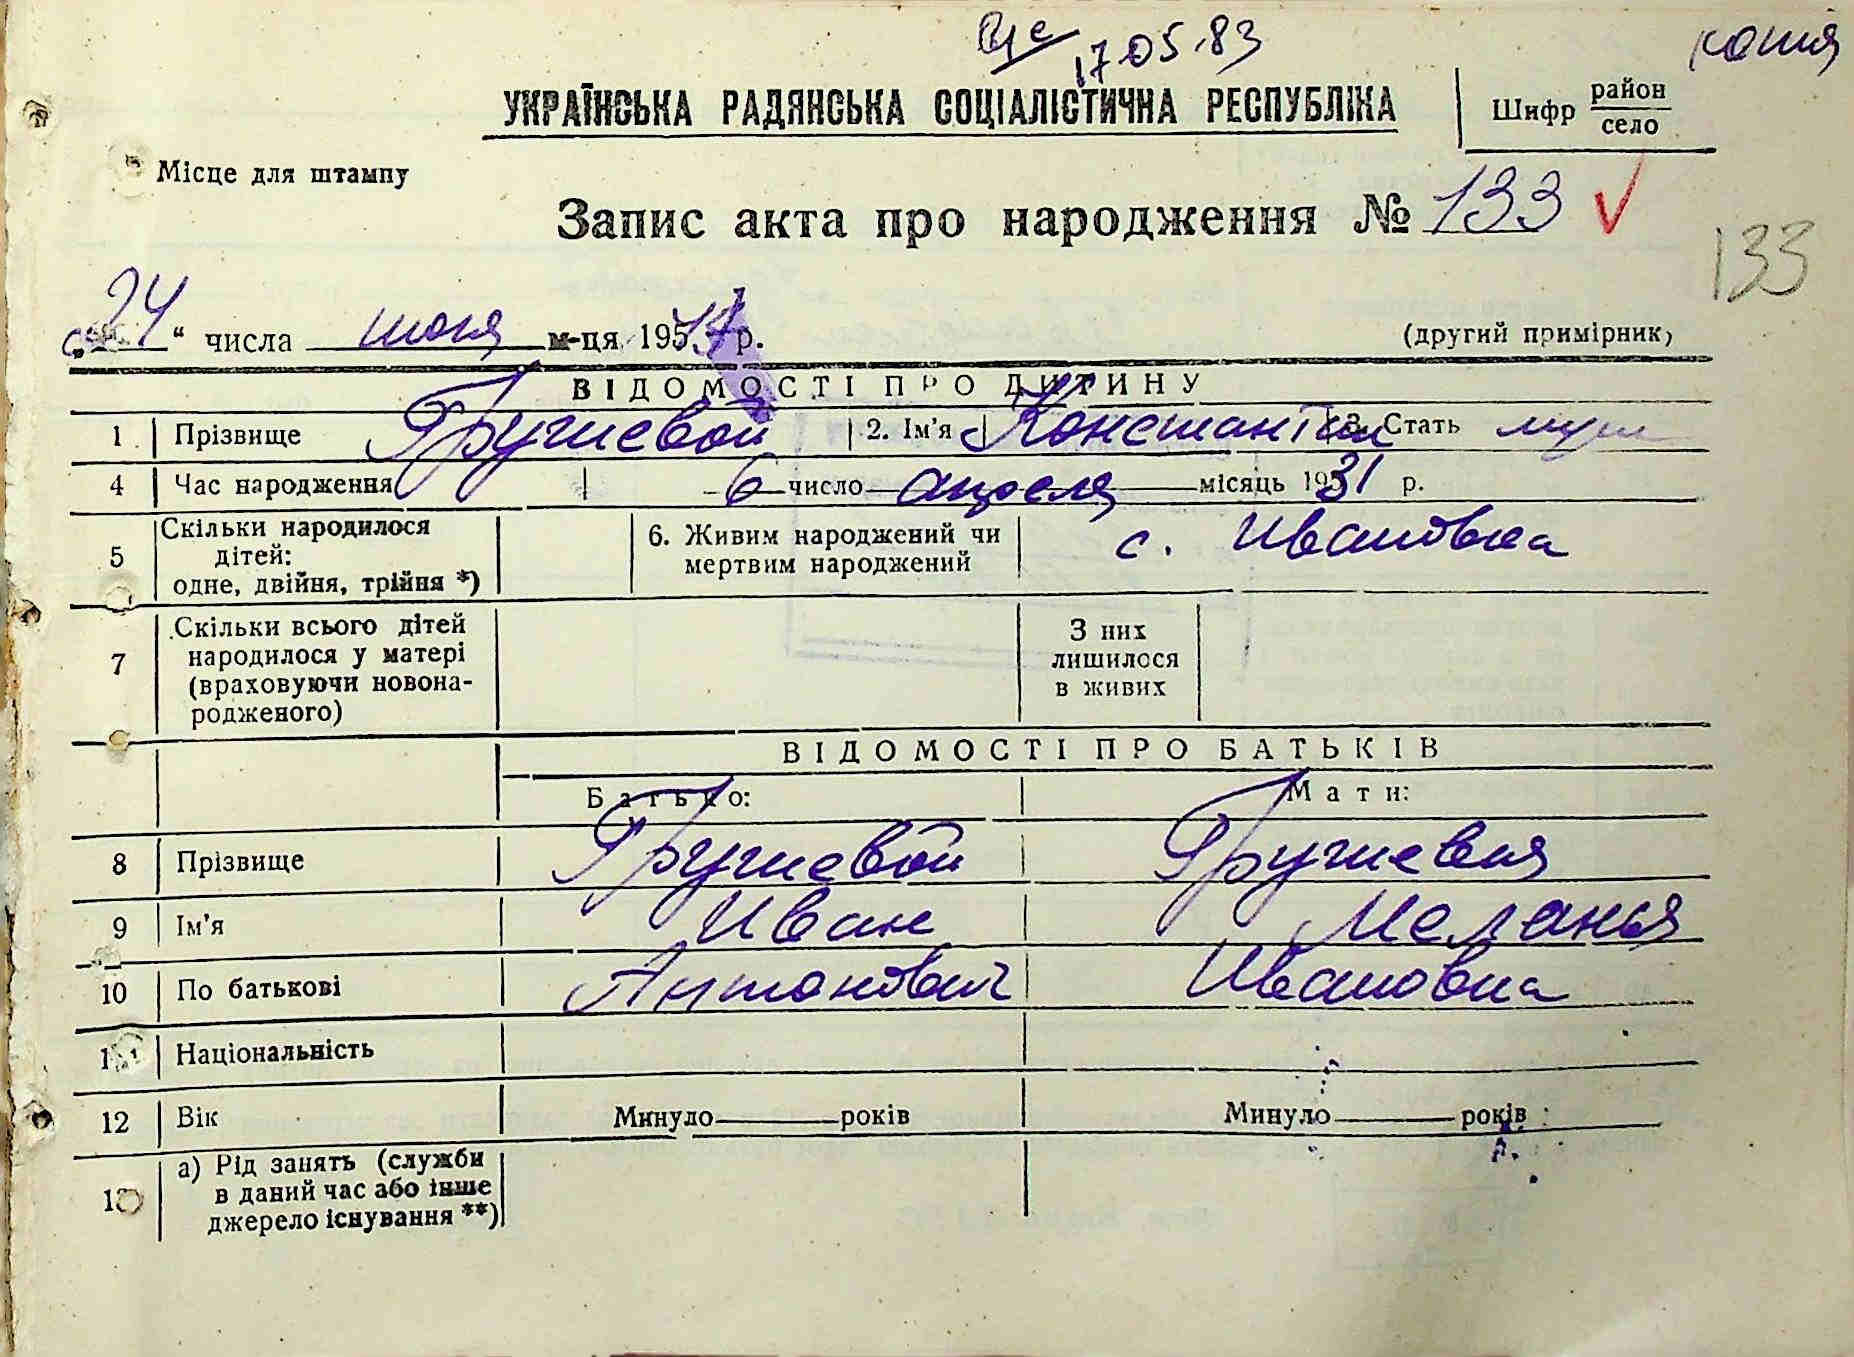 17.05.83
копия
УКРАЇНСЬКА РАДЯНСЬКА СОЦІАЛІСТИЧНА РЕСПУБЛІКА
Шифр район
село
Місце для штампу
Запис акта про народження № 133
133
„24“ числа июня м-ця 195 р.
(другий примірник)
ВІДОМОСТІ ПРО ДИТИНУ
1 Прізвище Грушевой 2. Ім’я Константин 3. Стать муж
4 Час народження 6 число апреля місяць 1931 р.
5 Скільки народилося дітей: одне, двійня, трійня *) 6. Живим народжений чи мертвим народжений с. Ивановка
7 Скільки всього дітей народилося у матері (враховуючи новонародженого) З них лишилося в живих
ВІДОМОСТІ ПРО БАТЬКІВ
Батько: Мати:
8 Прізвище Грушевой Грушевая
9 Ім’я Иван Меланья
10 По батькові Антонович Ивановна
11 Національність
12 Вік Минуло років Минуло років
13 а) Рід занять (служби в даний час або інше джерело існування **)